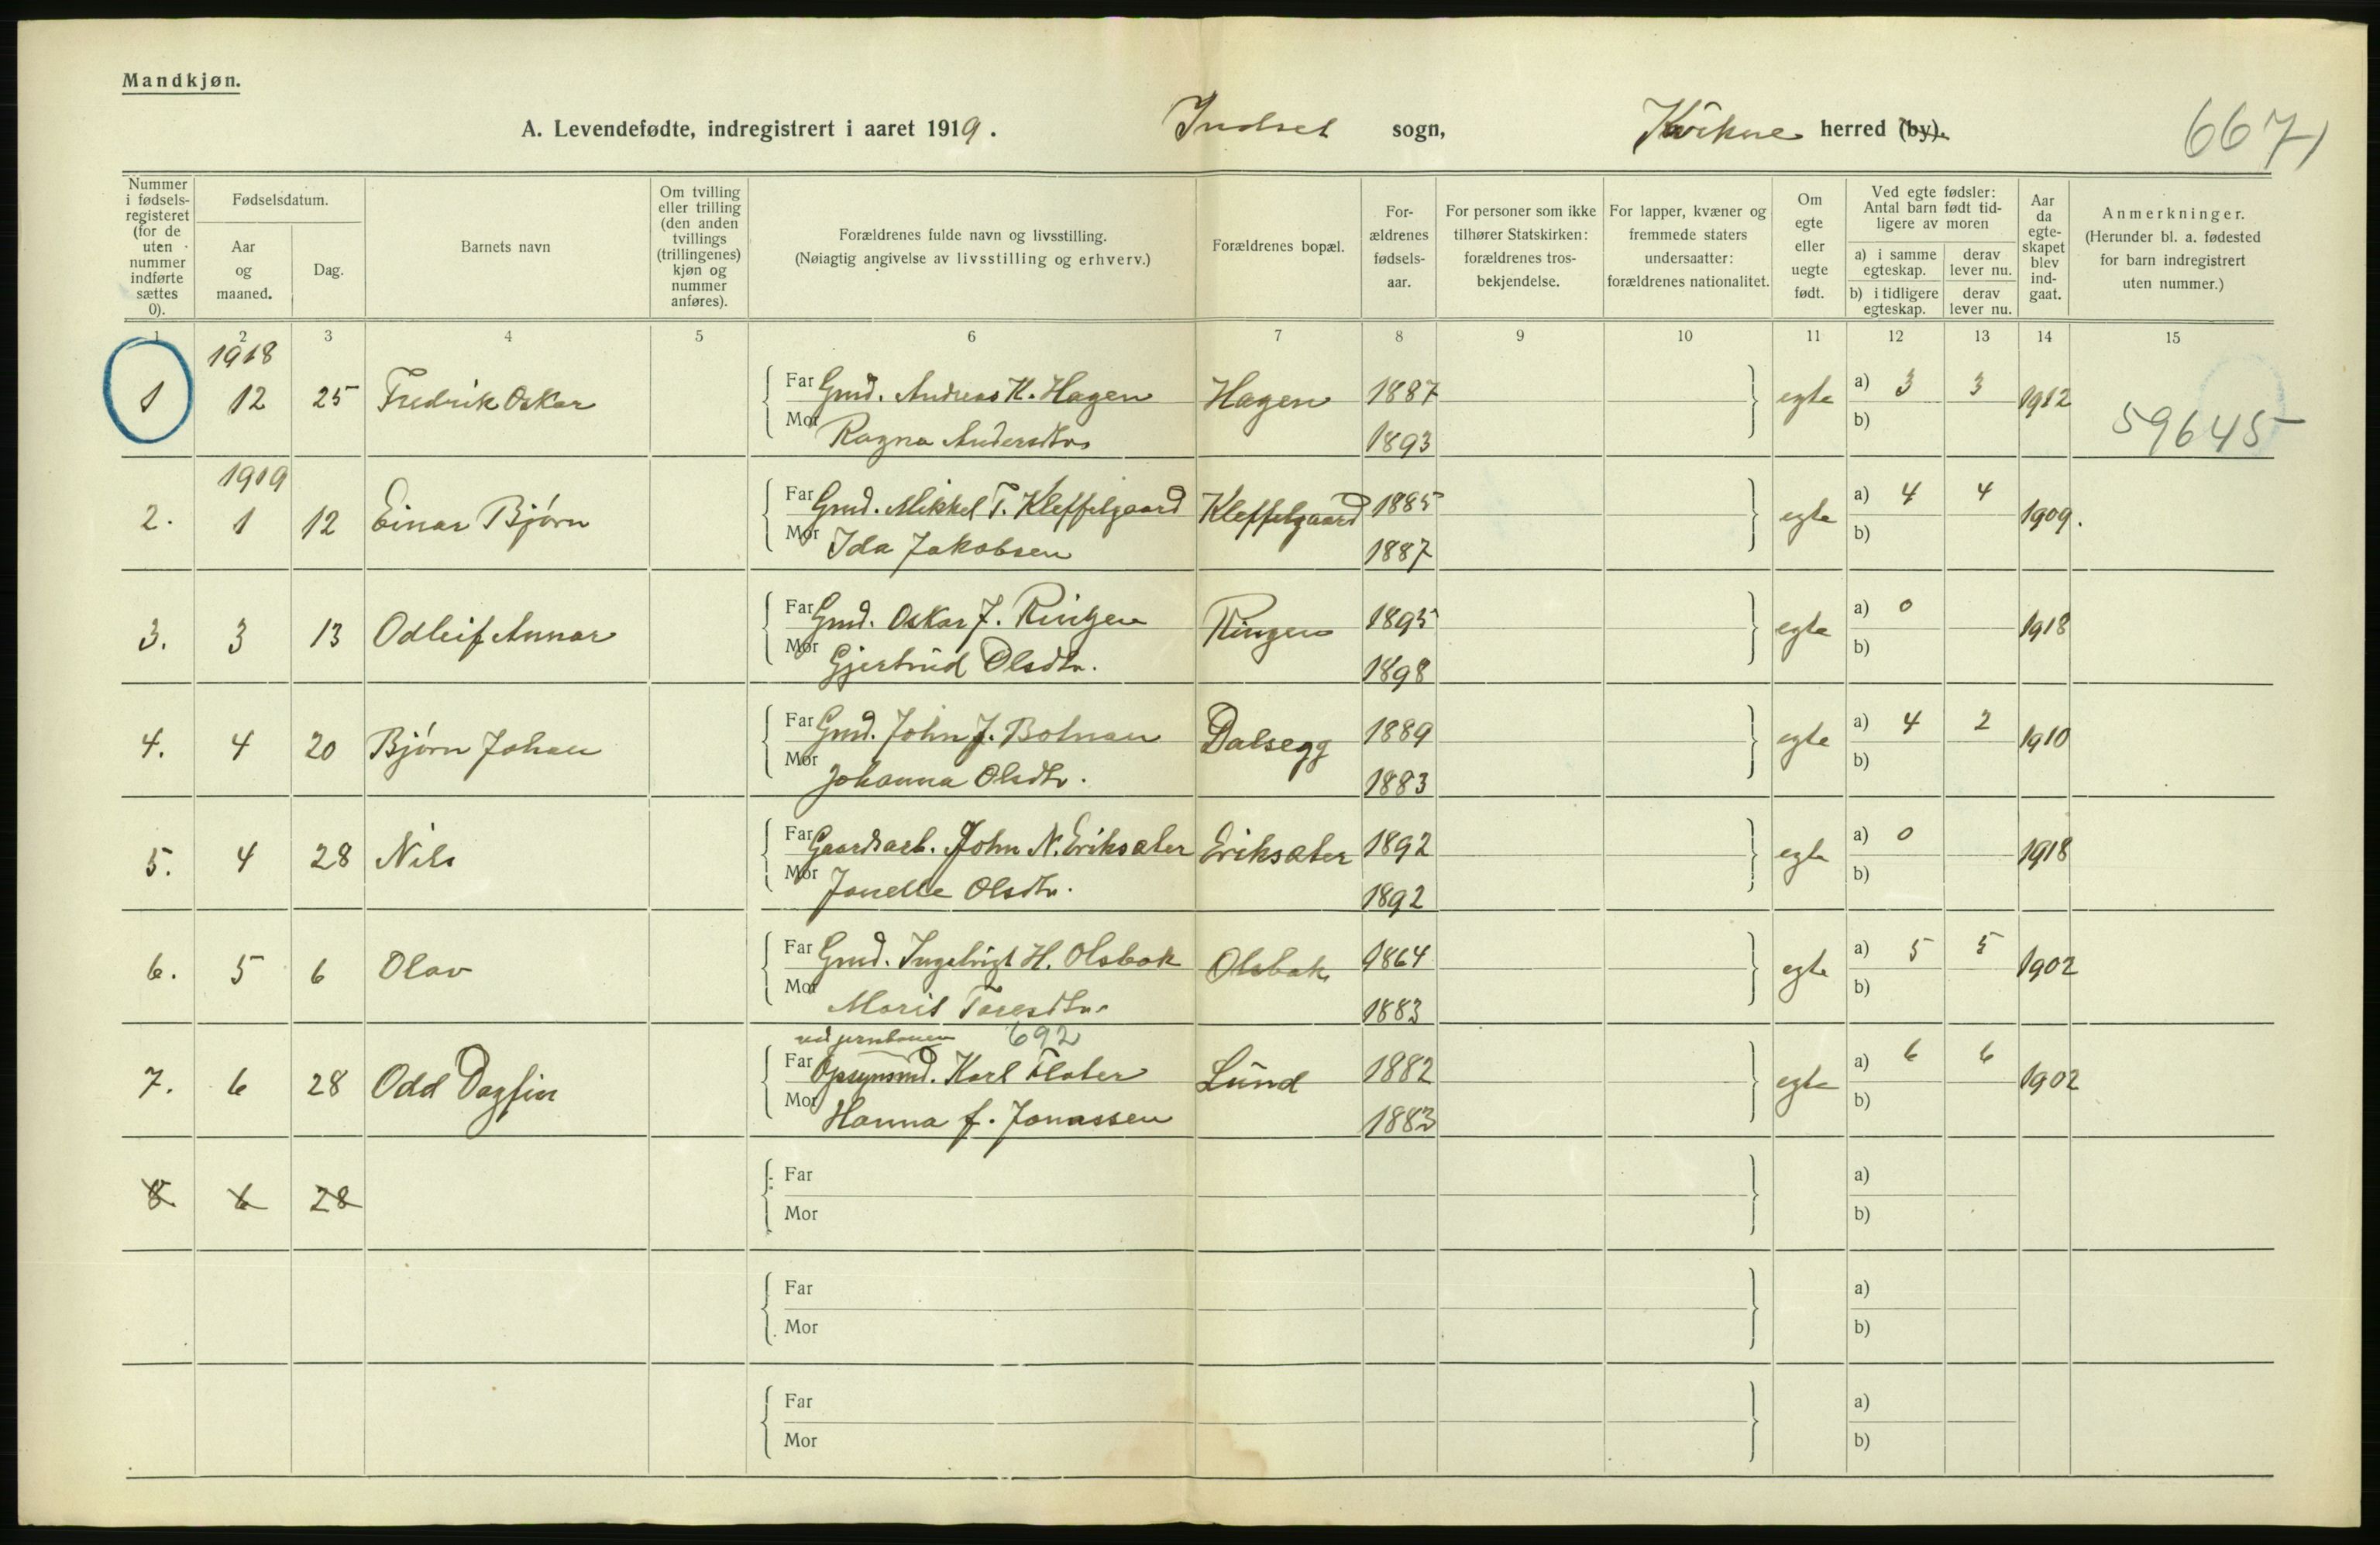 Mandkjøn.
A. Levendefødte, indregistrert i aaret 1919. Indset sogn, Kvikne herred (by).
667)
Nummer i fødselsregisteret (for de uten nummer indførte sættes 0).
Fødselsdatum.
Aar og maaned.
Dag.
Barnets navn
Om tvilling eller trilling (den anden tvillings (trillingenes) kjøn og nummer anføres).
Forældrenes fulde navn og livsstilling.
(Nøiagtig angivelse av livsstilling og erhverv.)
Forældrenes bopæl.
For-ældrenes fødsels-aar.
For personer som ikke tilhører Statskirken: forældrenes tros-bekjendelse.
For lapper, kvæner og fremmede staters undersaatter: forældrenes nationalitet.
Om egte eller uegte født.
Ved egte fødsler: Antal barn født tid-ligere av moren
a) i samme egteskap. derav lever nu.
b) i tidligere egteskap. derav lever nu.
Aar da egte-skapet blev ind-gaat.
Anmerkninger.
(Herunder bl. a. fødested for barn indregistrert uten nummer.)
1 2 3 4 5 6 7 8 9 10 11 12 13 14 15
1918
1 12 25 Fredrik Oskar Far Gmd. Andreas K. Hagen Hagen 1887 egte a) 3 3 1912
Mor Ragna Andersdtr. 1893 b) 59645
1919
2. 1 12 Einar Bjørn Far Gmd. Mikkel T. Kleffelgaard Kleffelgaard 1885 egte a) 4 4 1909.
Mor Ida Jakobsen 1887 b)
3. 3 13 Odleif Annar Far Gmd. Oskar J. Ringen Ringen 1895 egte a) 0 1918
Mor Gjertrud Olsdtr. 1898 b)
4. 4 20 Bjørn Johan Far Gmd. John J. Bolman Dalsegg 1889 egte a) 4 2 1910
Mor Johanna Olsdtr. 1883 b)
5. 4 28 Nils Far Gaardsarb. John N. Eriksæter Eriksæter 1892 egte a) 0 1918
Mor Jonette Olsdtr. 1892 b)
6. 5 6 Olav Far Gmd. Ingebrigt H. Olsbak Olsbak 1864 egte a) 5 5 1902
Mor Marit Toresdtr. 1883 b)
ved jernbanen 692
7. 6 28 Odd Dagfin Far Opsynsmd. Karl Flater Lund 1882 egte a) 6 6 1902
Mor Hanna f. Jonassen 1883 b)
8 6 28 Far a)
Mor b)
Far a)
Mor b)
Far a)
Mor b)